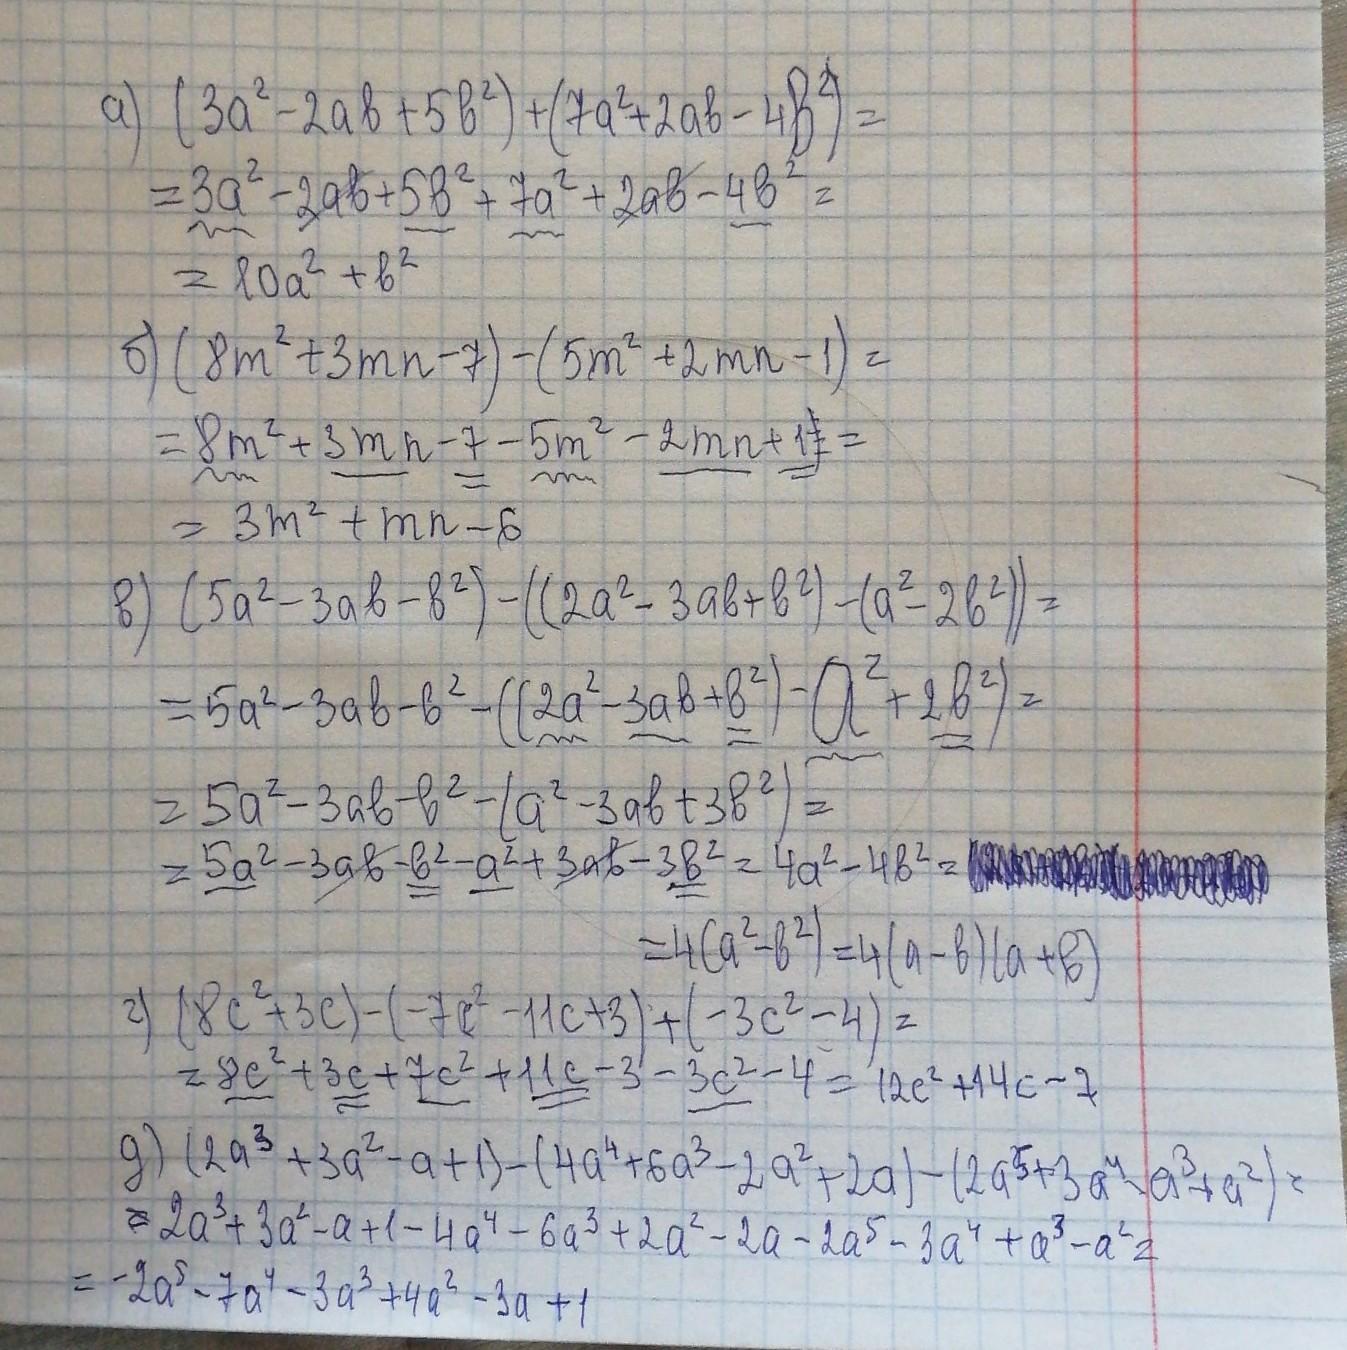 а) (3a² - 2ab + 5b²) + (7a² + 2ab - 4b²) =
= 3a² - 2ab + 5b² + 7a² + 2ab - 4b² =
= 10a² + b²
б) (8m² + 3mn - 7) - (5m² + 2mn - 1) =
= 8m² + 3mn - 7 - 5m² - 2mn + 1 =
= 3m² + mn - 6
в) (5a² - 3ab - b²) - ((2a² - 3ab + b²) - (a² - 2b²)) =
= 5a² - 3ab - b² - ((2a² - 3ab + b²) - a² + 2b²) =
= 5a² - 3ab - b² - (a² - 3ab + 3b²) =
= 5a² - 3ab - b² - a² + 3ab - 3b² = 4a² - 4b² =
= 4(a² - b²) = 4(a - b)(a + b)
г) (8c² + 3c) - (-7c² - 11c + 3) + (-3c² - 4) =
= 8c² + 3c + 7c² + 11c - 3 - 3c² - 4 = 12c² + 14c - 7
д) (2a³ + 3a² - a + 1) - (4a⁴ + 6a³ - 2a² + 2a) - (2a⁵ + 3a⁴ - a³ + a²) =
= 2a³ + 3a² - a + 1 - 4a⁴ - 6a³ + 2a² - 2a - 2a⁵ - 3a⁴ + a³ - a² =
= -2a⁵ - 7a⁴ - 3a³ + 4a² - 3a + 1